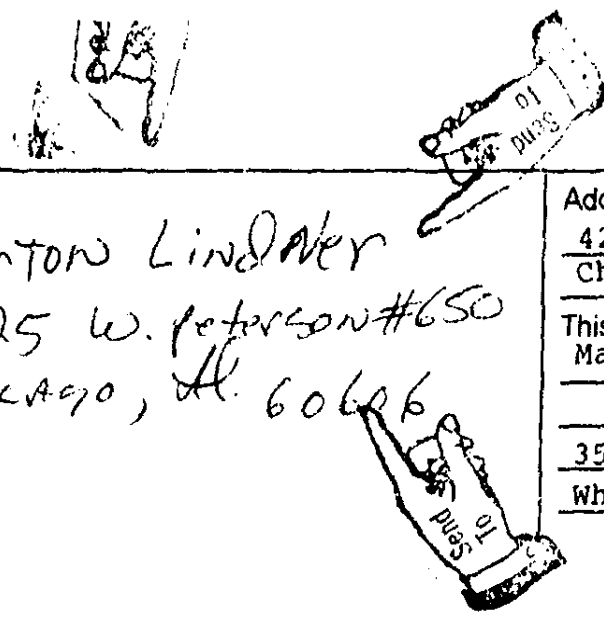 Send
To
nton Lindner
25 W. Peterson #650
cago, Il. 60606
Send
To
Add
42
Ch
This
Ma
35
Wh